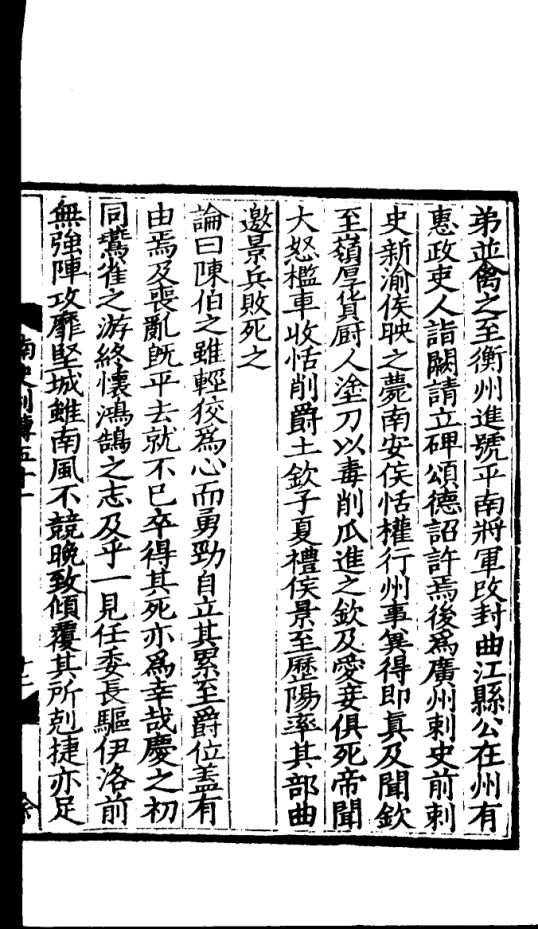 弟並禽之至衡州進號平南將軍改封曲江縣公在州有
惠政吏人詣闕請立碑頌德詔許焉後爲廣州刺史前刺
史新渝侯映之薨南安侯恬權行州事兾得即真及聞欽
至嶺厚貨厨人塗刀以毒削瓜進之欽及愛妾俱死帝聞
大怒檻車收恬削爵土欽子夏禮侯景至歷陽率其部曲
邀景兵敗死之
論曰陳伯之雖輕狡爲心而勇勁自立其累至爵位蓋有
由焉及喪亂旣平去就不已卒得其死亦爲幸哉慶之初
同鷰雀之游終懷鴻鵠之志及乎一見任委長驅伊洛前
無強陣攻靡堅城雖南風不競晚致傾覆其所剋捷亦足
南史列傳五十一
十二